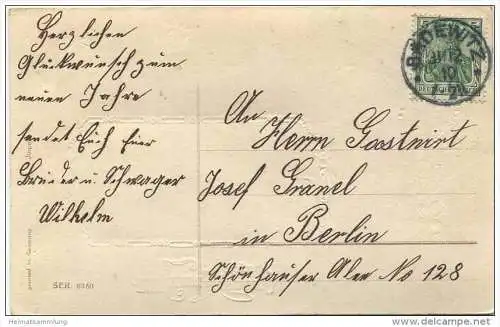 Herzlichen
Glückwunsch zum
neuen Jahre
sendet Euch Euer
Bruder u. Schwager
Wilhelm
SER. 6160
printed in Germany
BADEWITZ
31 12
10
5
DEUTSCHES REICH
An
Herrn Gastwirt
Josef Granel
in Berlin
Schönhauser Alee No 128
Heimatsammlung